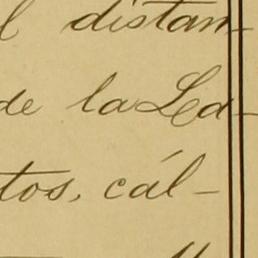 l distan-
de la Lea-
tos, cál-